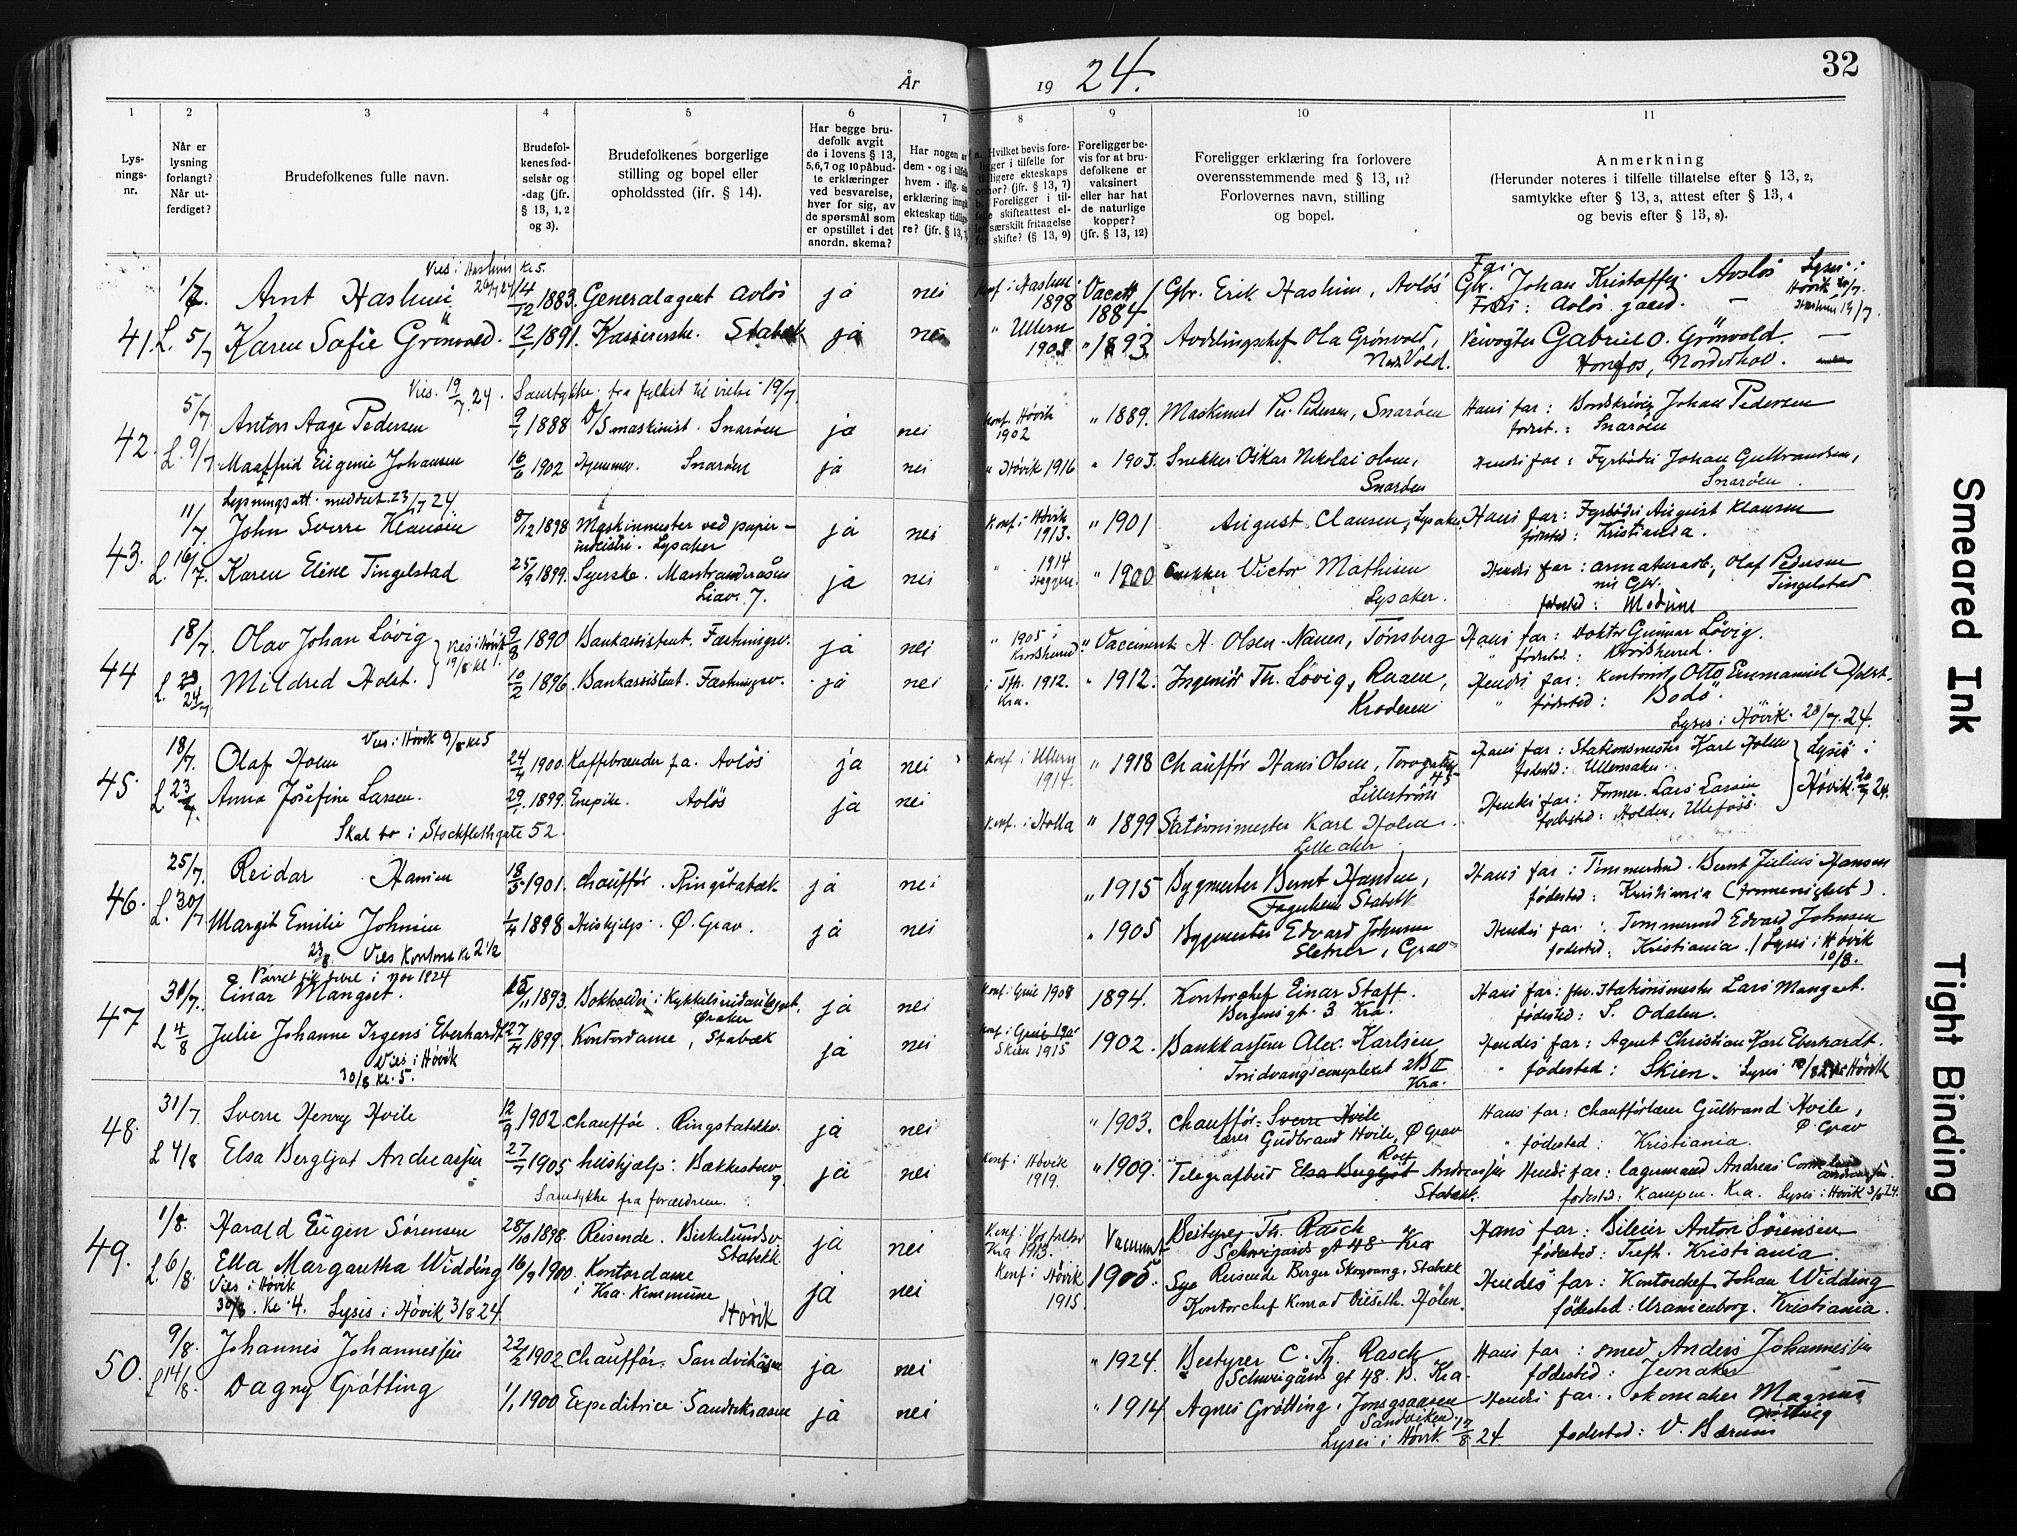 År 1924.
32
1
2
3
4
5
6
7
8
9
10
11
Lys-
nings-
nr.
Når er
lysning
forlangt?
Når ut-
ferdiget?
Brudefolkenes fulle navn.
Brudefol-
kenes fød-
selsår og
-dag (jfr.
§ 13, 1, 2
og 3).
Brudefolkenes borgerlige
stilling og bopel eller
opholdssted (jfr. § 14).
Har begge bru-
defolk avgit
de i lovens § 13,
5,6,7 og 10 påbud-
te erklæringer
ved besvarelse,
hver for sig, av
de spørsmål som
er opstillet i det
anordn. skema?
Har nogen av
dem - og i tilfelle
hvem - iflg. sin
erklæring inngått
ekteskap tidlige-
re? (jfr. § 13,
a. Hvilket bevis fore-
ligger i tilfelle for
tidligere ekteskaps
ophør? (jfr. § 13, 7)
b. Foreligger i til-
felle skifteattest el-
ler særskilt fritagelse
for skifte? (§ 13, 9)
Foreligger be-
vis for at bru-
defolkene er
vaksinert
eller har hat
de naturlige
kopper?
(jfr. § 13, 12)
Foreligger erklæring fra forlovere
overensstemmende med § 13, 11?
Forlovernes navn, stilling
og bopel.
Anmerkning
(Herunder noteres i tilfelle tillatelse efter § 13, 2,
samtykke efter § 13, 3, attest efter § 13, 4
og bevis efter § 13, 8).
Vies i Haslum kl 5.
26/7 24
1/7. Arnt Haslum 14/12 1883. Generalagent Avløs ja nei Konf. i Haslum 1898 Vacatt 1884 Gbr. Erik Haslum, Avløs Gbr. Johan Kristoffer Avløs
Føds: Avløs gaard. Lyses i Høvik 20/7. Haslum
41. L. 5/7 Karen Sofie Grönvold. 12/1 1891. Kassererske. Stabæk ja nei " Ullern 1905 " 1893. Avdelingschef Ola Grønvold, Veivogter Gabriel O. Grönvold.
Honefos, Norderhov.
Vies. 19/7.24. Samtykke fra fylket til vielse 19/7.
42. 5/7 Anton Aage Pedersen 9/1 1888 D/S maskinist. Snarøen ja nei Konf. Høvik 1902 " 1889. Maskinist Pedersen, Snarøen Hans far: Johan Pedersen
fødest.: Snarøen
L. 9/7 Maalfrid Eugenie Johansen 16/6 1902 Hjemmev. Snarøen ja nei " Høvik 1916 " 1903. Snekker Oskar Nikolai Olsen,
Snarøen Hendes far: Fyrbøder Johan Gulbrandsen,
Snarøen.
Lysningsatt. meddelt 23/7 24
43. 11/7 John Sverre Klausen 8/12 1898 Maskinmester ved papir-
industri. Lysaker ja nei Konf. i Høvik 1913. " 1901 August Clausen, Lysaker. Hans far: Fyrbøder August Klausen
fødested: Kristiania.
L. 16/7. Karen Eline Tingelstad 25/9 1899. Syerske. Marstrandersåsen
Liav. 7. ja nei " 1914 Heggen. " 1900 Snekker Victor Mathisen
Lysaker. Hendes far: armaturarb. Olaf Pedersen
Tingelstad
fødested: Modum
44 18/7. Olav Johan Lövig 9/8 1890 Bankassistent. Fæstningsv. ja nei " 1905 i Krødsherred " Vaccinert H. Olsen-Nauen, Tønsberg Hans far: Doktor Gunnar Lövig.
" fødested: Krödsherred.
Vies i Høvik
19/8 kl 1.
L. 24/7 Mildred Holst. 10/2 1896. Bankassistent. Fæstningsv. ja nei i Tfh. 1912. Kra. " 1912. Ingeniör Th. Lövig, Raaen,
Kröderen Hendes far: Kontorist Otto Emmanuel Holst.
" fødested: Bodö.
Lyses i Høvik. 20/7.24.
Vies i Høvik 9/8 kl 5
45. 18/7. Olaf Holm 24/4 1900. Kaffebrænder f.a. Avlös ja nei Konf. i Ullern 1914. " 1918 Chauffør Hans Olsen, Torvgaten 45
Lillestrøm Hans far: Stationsmester Karl Holm
fødested: Ullensaker.
L 23/7. Anna Josefine Larsen. 29/1. 1899. Enepike. Avlös ja nei Konf. i Holla " 1899 Statsonsmester Karl Holm.
Hendes far: Former. Lars Larsen
fødested: Holden, Ulefoss.
Lyses i
Høvik. 20/7 24.
Skal bo i Stockflethgate 52.
46. 25/7. Reidar Hansen 18/5 1901. Chauffør. Ringstabæk ja nei " 1915 Bygmester Bernt Hansen,
Fagerheim Stabekk Hans far: Tømmermd. Bernt Julius Hansen
fødested: Kristiania (Frimenighet).
L. 30/7 Margit Emilie Johnsen 1/4 1898 Hushjelp. Ø. Grav. ja nei " 1905 Bygmester Edvard Johnsen
Sletner, Grav Hendes far: Tømmermd Edvard Johnsen
fødested: Kristiania. / Lyses i Høvik
10/8.
23/8 Vies Kontoret kl 2 1/2
47 31/7. Einar Mangset. 15/11 1893. Bokholder i
Øraker ja nei Konf. Grue 1908 1894. Kontorchef Einar Staff.
Bergensgt. 3 Kra. Hans far: fhv. Stationsmester Lars Mangset.
fødested: S. Odalen.
L 4/8 Julie Johanne Irgens Eberhardt 27/4 1899. Kontordame, Stabæk ja nei
Skien 1915 1902. Bankkasserer Alex. Karlsen
Kra. Hendes far: Agent Christian Karl Eberhardt.
" fødested: Skien. Lyses 10/8 24 i Høvik
Vies i Høvik
30/8 kl. 5.
48. 31/7. Sverre Henry Hvile 12/9 1902. Chauffør. Ringstabekkv. ja nei " 1903. Chauffør- Sverre Hvile
lærer Gudbrand Hvile, Ø Grav Hans far: Chaufførlærer Gulbrand Hvile,
Ø. Grav
" fødested: Kristiania.
L 4/8 Elsa Bergljot Andreassen 27/7 1905 hushjælp: Bækkestuv 9. ja nei Konf. i Høvik 1919. " 1909. Telegrafbud Elsa Bergljot Rolf Andreassen
Stabæk. Hendes far: lagermand Andreas
fødested: Kampen. Kra. Lyses i Høvik 3/8 24.
Samtykke fra forældrene.
49. 1/8. Harald Eugen Sörensen 28/10 1898. Reisende. Birkelundsv
Stabekk ja nei Konf. i
Kra 1913. Vaccinert Bestyrer Th. Rasch
Schweigaards gt 48. Kra Hans far: Bileier Anton Sørensen
fødested: Trefh. Kristiania.
L. 6/8. Ella Margaretha Widding 16/9 1900. Kontordame
i Kra. Kommune
Høvik ja nei Konf. i Høvik 1915. 1905. Reisende Berger Skogvang, Stabekk
Kontorchef Konrad Hølen. Hendes far: Kontorchef Johan Widding
fødested: Uranienborg. Kristiania.
Vies i Høvik
30/8. Kl. 4. Lyses i Høvik 3/8 24
50. 9/8. Johannes Johannessen 22/2 1902 Chauffør. Sandvikåsen ja nei " 1924. Bestyrer C. Th. Rasch
Schweigårds gt 48. B. Kra Hans far: smed Anders Johannessen
fødested: Jevnaker
L 14/8. Dagny Grötting 1/1 1900 Expeditrice Sandviksåsen ja nei " 1914 Agnes Grötting, Jongsaasen
Sandviken Hendes far: skomaker Magnus
Grötting
fødested: V. Bærum
Lyses i Høvik 17/8 24.
Smeared Ink
Tight Binding